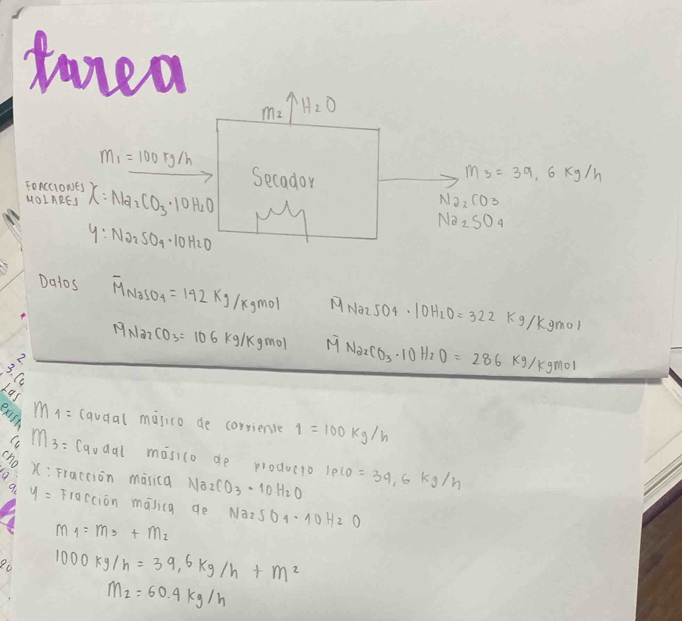 tarea
m₂ ↑ H₂O
m₁ = 100 kg/h
Secador
m₃ = 39,6 kg/h
FRACCIONES MOLARES
X: Na₂CO₃·10H₂O
Na₂CO₃
Na₂SO₄
y: Na₂SO₄·10H₂O
Datos
M̄ NaSO₄ = 142 Kg/Kgmol
M̄ Na₂SO₄·10H₂O = 322 Kg/Kgmol
M̄ Na₂CO₃ = 106 Kg/Kgmol
M̄ Na₂CO₃·10H₂O = 286 Kg/Kgmol
m₁ = Caudal másico de corriente 1 = 100 Kg/h
m₃ = Caudal másico de producto seco = 39,6 kg/h
X: Fracción másica Na₂CO₃·10H₂O
y = Fracción másica de Na₂SO₄·10H₂O
m₁ = m₃ + m₂
1000 kg/h = 39,6 Kg/h + m²
m₂ = 60.4 kg/h